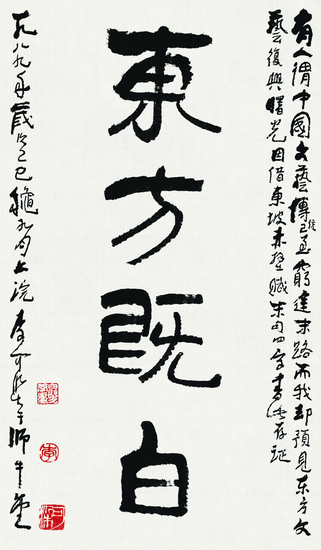 有人謂中國文藝傳統已至窮途末路而我却預見东方文
藝復興曙光因借東坡赤壁賦末句四字書此存証
東方既白
一九八九年歲次己巳龝九月上浣李可染於師牛堂